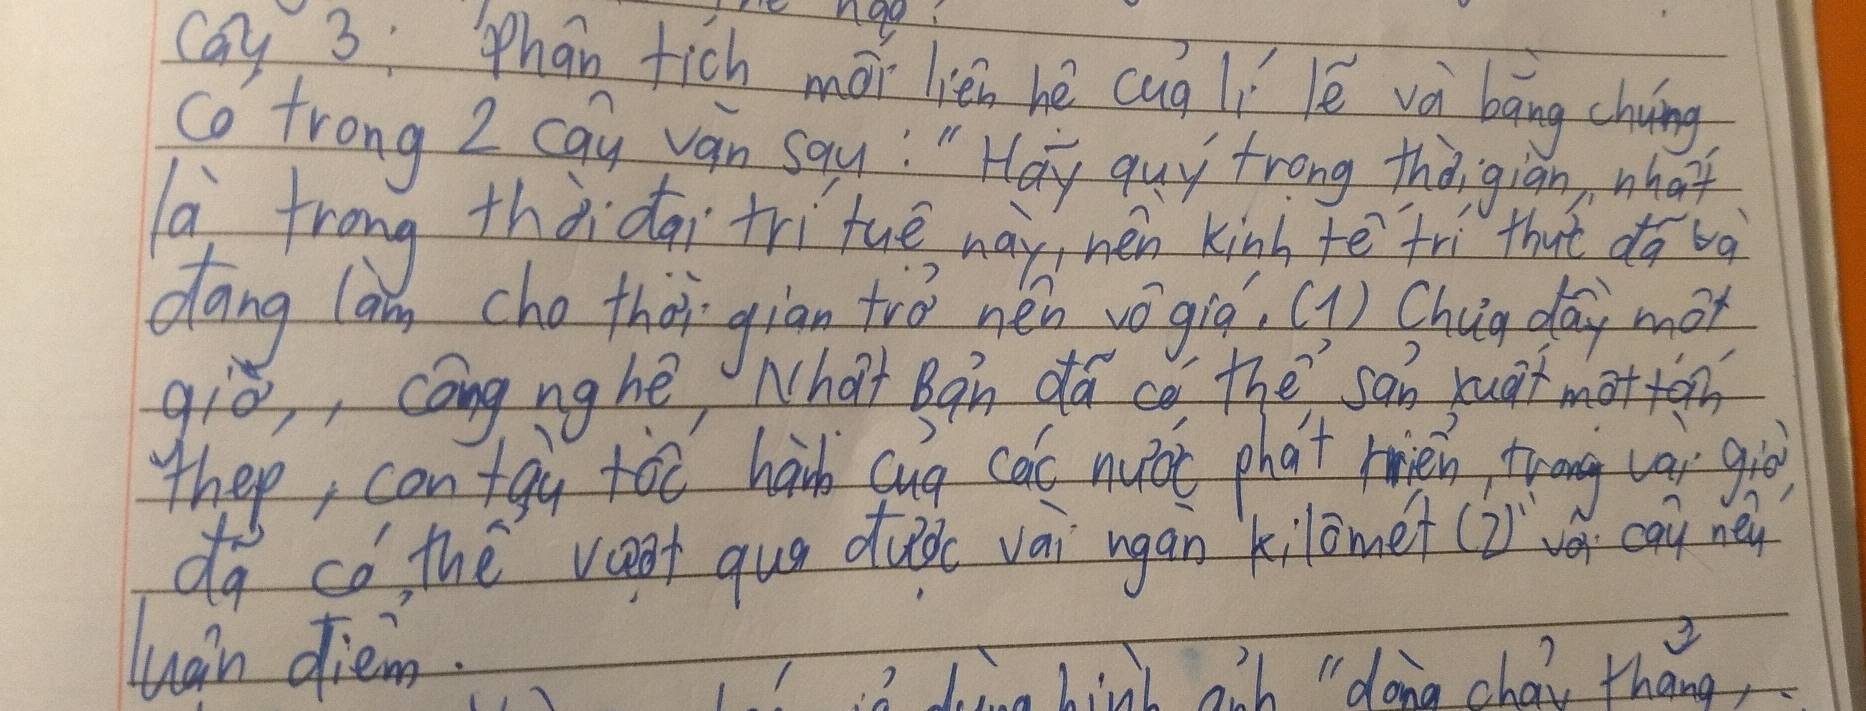 Câu 3: Phân tích mối liên hệ của lí lẽ và bằng chứng
có trong 2 câu văn sau: "Hãy quý trọng thời gian, nhất
là trong thời đại trí tuệ này, nền kinh tế trí thức đã và
đang làm cho thời gian trở nên vô giá. (1) Chưa đầy một
giờ, công nghệ Nhật Bản đã có thể sản xuất một tấn
thép, con tàu tốc hành của các nước phát triển, trong vài giờ
đã có thể vượt qua được vài ngàn kilômét (2)" và câu nêu
luận điểm.
dùng hình ảnh "dòng chảy thẳng,